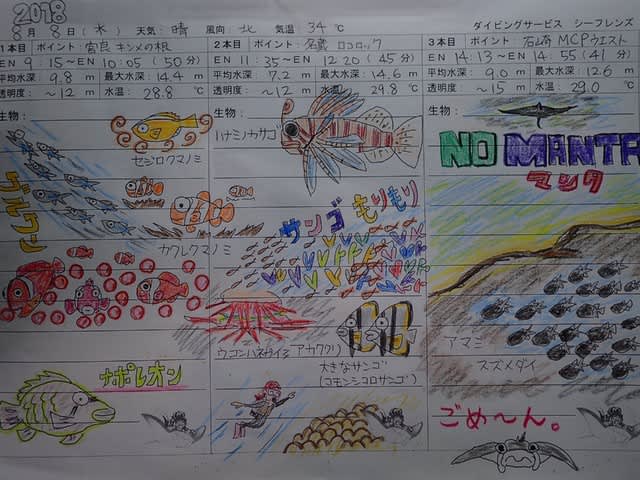 2018
8月8日(水) 天気:晴 風向:北 気温:34℃ ダイビングサービス シーフレンズ
1本目 ポイント:富良 キンメの根
EN 9:15~EN 10:05(50分)
平均水深: 9.8 m 最大水深: 14.4 m
透明度: ~12 m 水温: 28.8 ℃
生物:
セジロクマノミ
グルクン
カクレクマノミ
ナポレオン
2本目 ポイント:名蔵 ロコロック
EN 11:35~EN 12:20(45分)
平均水深: 7.2 m 最大水深: 14.6 m
透明度: ~12 m 水温: 29.8 ℃
生物:
ハナミノカサゴ
サンゴ もりもり
ウコンハネガイ
アカククリ
大きなサンゴ
(コモンシコロサンゴ)
3本目 ポイント:石崎 MCPウエスト
EN 14:13~EN 14:55(41分)
平均水深: 9.0 m 最大水深: 12.6 m
透明度: ~15 m 水温: 29.0 ℃
生物:
NO MANTA
マンタ
アマミ
スズメダイ
ごめ~ん。